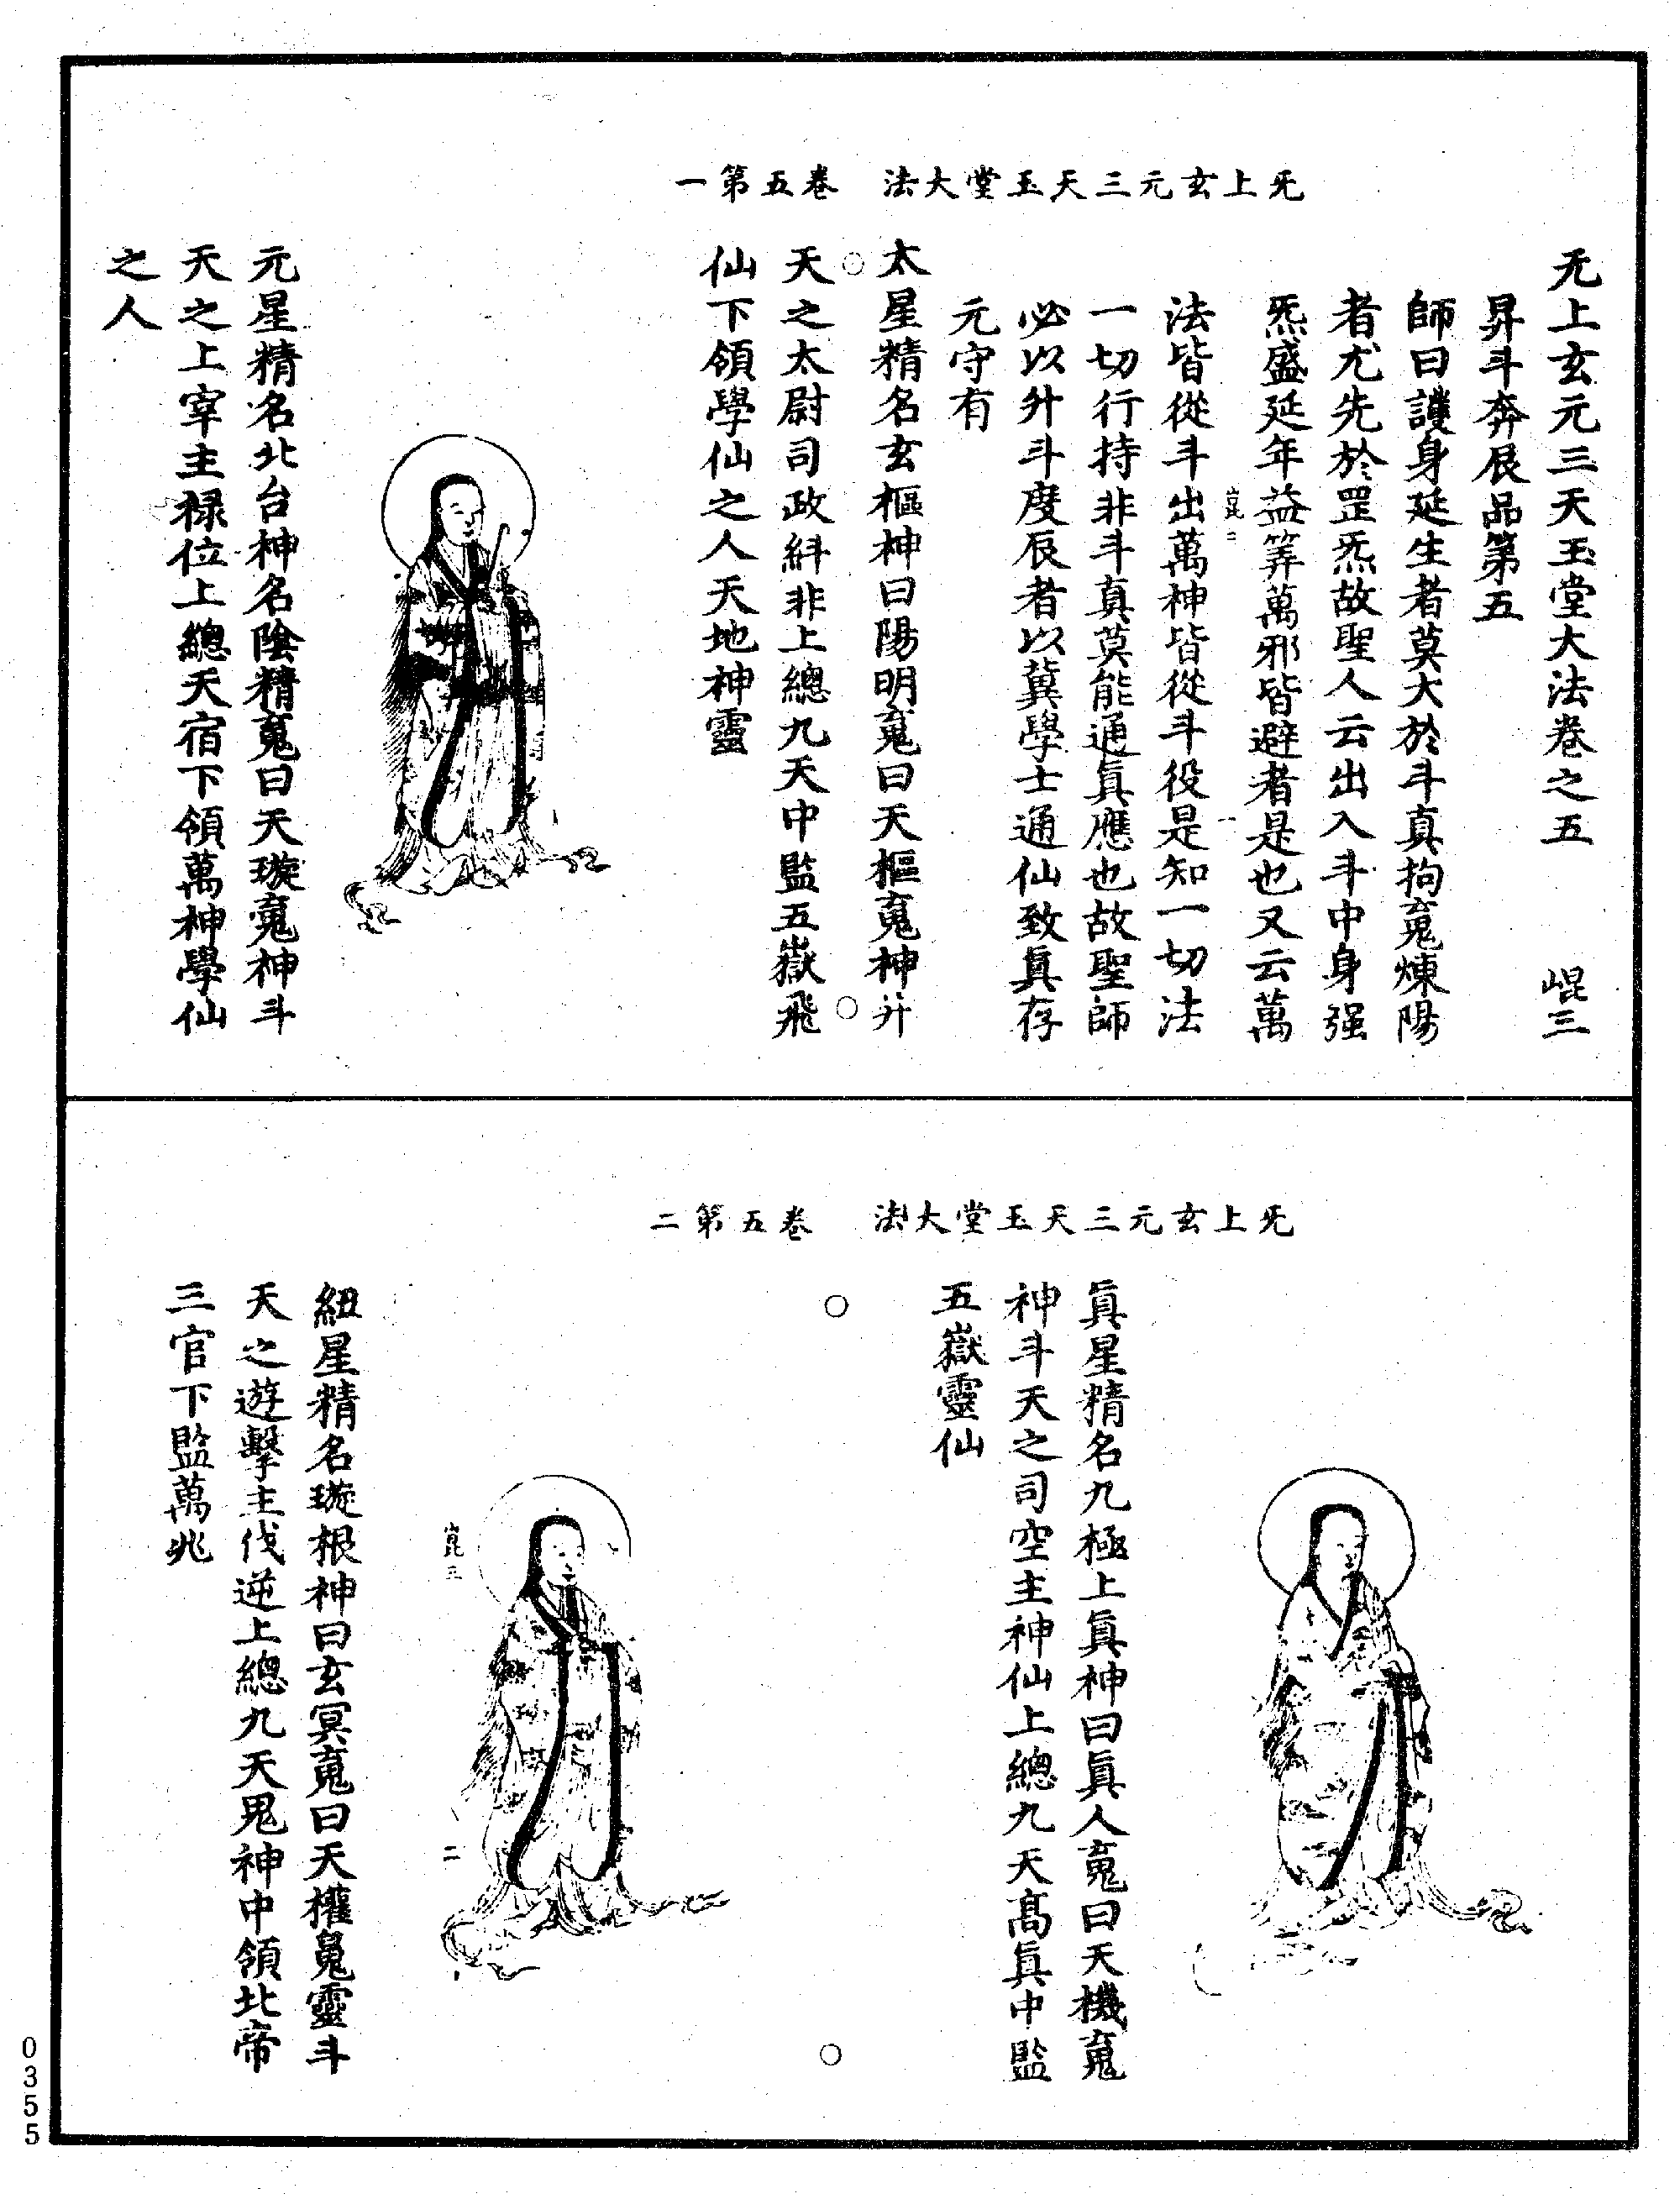 无上玄元三天玉堂大法　卷五第一
无上玄元三天玉堂大法卷之五　崐三
昇斗奔辰品第五
師曰護身延生者莫大於斗真拘䰟煉陽
者尤先於罡炁故聖人云出入斗中身强
炁盛延年益筭萬邪皆避者是也又云萬
崑三　一
法皆從斗出萬神皆從斗役是知一切法
一切行持非斗真莫能通眞應也故聖師
必以升斗度辰者以冀學士通仙致眞存
元守有
太星精名玄樞神曰陽明䰟曰天樞䰟神并
天之太尉司政紏非上總九天中監五嶽飛
仙下領學仙之人天地神靈
元星精名北台神名陰精䰟曰天璇䰟神斗
天之上宰主祿位上總天宿下領萬神學仙
之人
无上玄元三天玉堂大法　卷五第二
眞星精名九極上眞神曰眞人䰟曰天機䰟
神斗天之司空主神仙上總九天髙眞中監
五嶽靈仙
崑三　二
紐星精名璇根神曰玄冥䰟曰天權䰟靈斗
天之遊擊主伐逆上總九天鬼神中領北帝
三官下監萬兆
0355